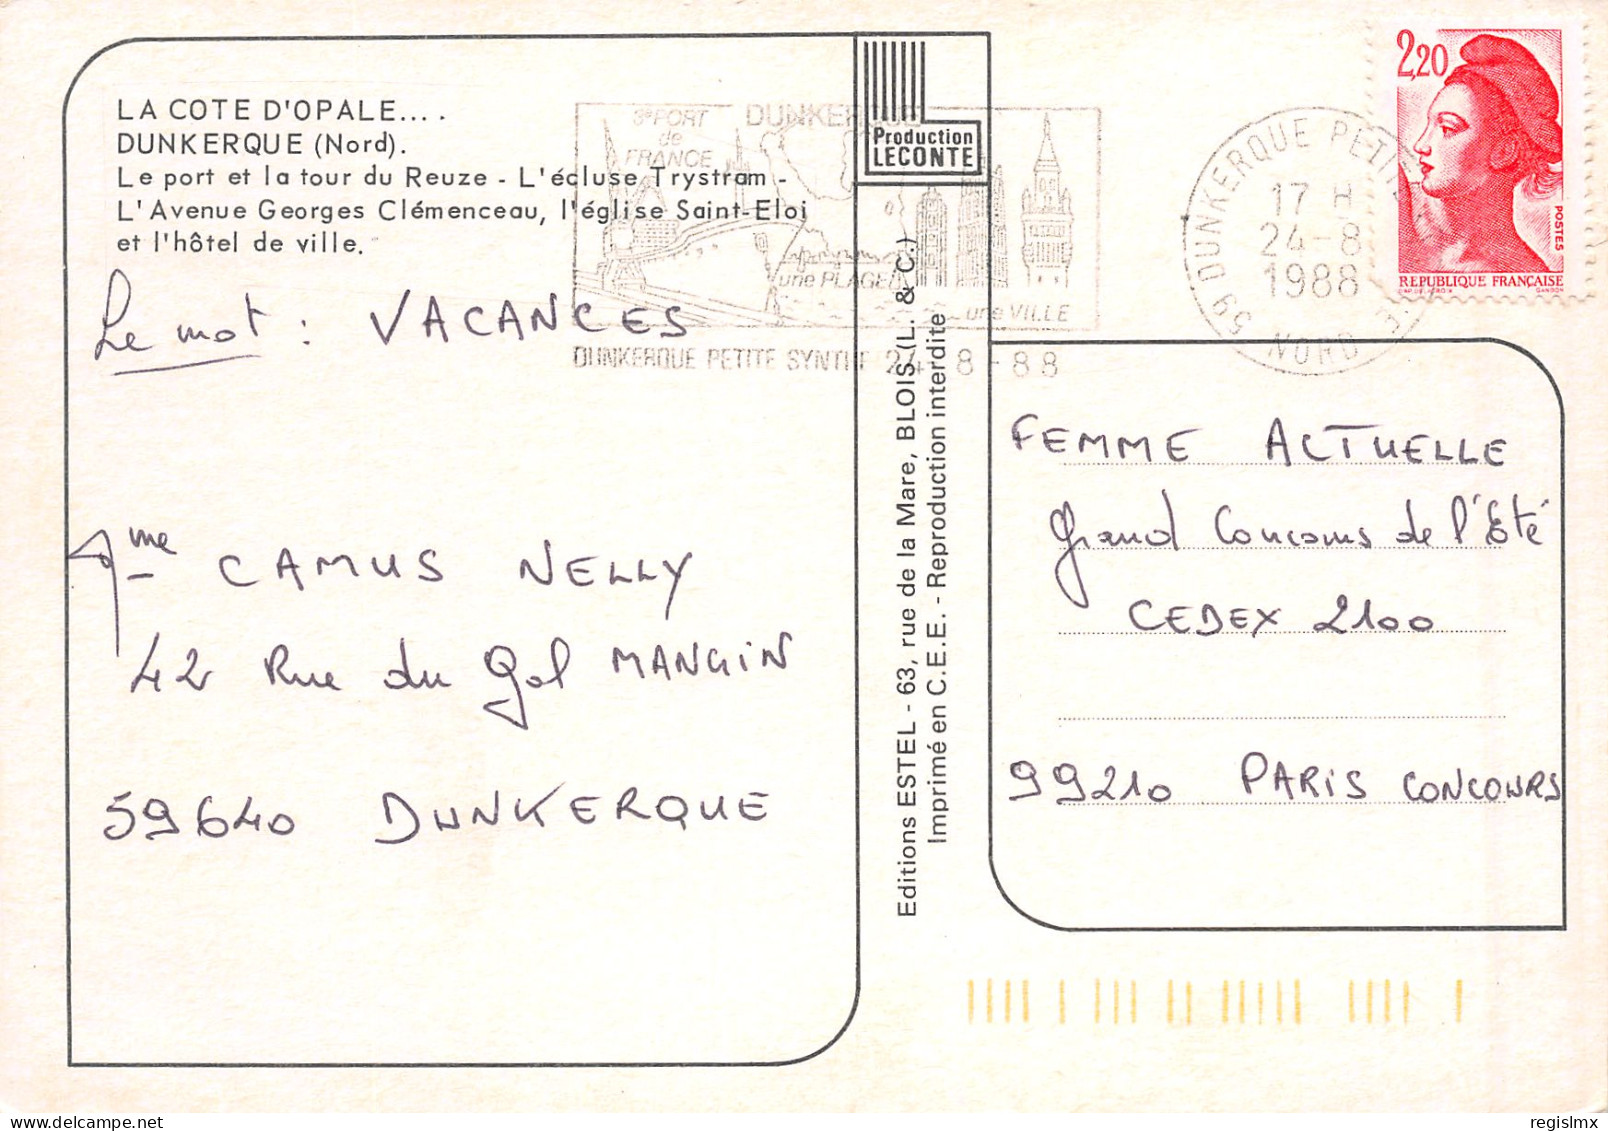 LA COTE D'OPALE... .
DUNKERQUE (Nord).
Le port et la tour du Reuze - L'écluse Trystram -
L'Avenue Georges Clémenceau, l'église Saint-Eloi
et l'hôtel de ville.
Le mot : VACANCES
Mme CAMUS NELLY
42 Rue du Gal MANGIN
59640 DUNKERQUE
3e PORT
de
FRANCE
DUNKERQUE
une PLAGE
une VILLE
DUNKERQUE PETITE SYNTHE 24-8-88
Production
LECONTE
Editions ESTEL - 63, rue de la Mare, BLOIS (L. & C.)
Imprimé en C.E.E. - Reproduction interdite
59 DUNKERQUE PETITE
17 H
24-8
1988
NORD
2,20
POSTES
REPUBLIQUE FRANÇAISE
D'AP. DELACROIX GANDON
FEMME ACTUELLE
Grand Concours de l'Eté
CEDEX 2100
99210 PARIS CONCOURS
regislmx